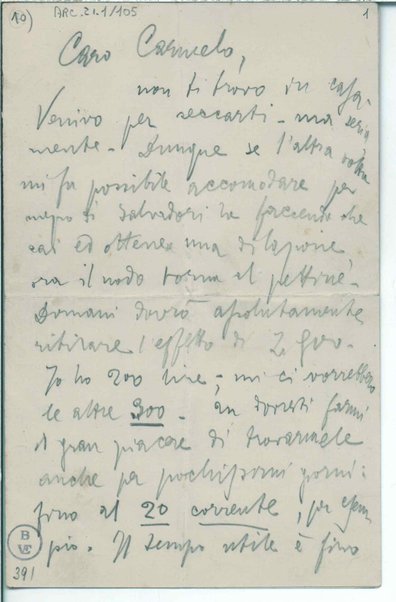 10) ARC.21.1/105 1
Caro Carmelo,
non ti trovo in casa.
Venivo per seccarti - ma seria
mente - Dunque se l'altra volta
mi fu possibile accomodare per
mezzo di Salvadori la faccenda che
sai ed ottenere una dilazione,
ora il nodo torna al pettine.
Domani dovrò assolutamente
ritirare l'effetto di L
Io ho 200 lire; mi ci vorrebbero
le altre 300 - dovresti farmi
il gran piacere di trovarmele
anche per pochissimi giorni:
fino al 20 corrente, per esem
pio. Il tempo utile è fino
B
391